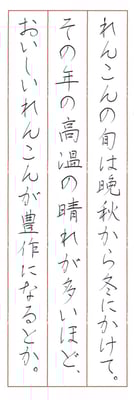 れんこんの旬は晩秋から冬にかけて。
その年の高温の晴れが多いほど、
おいしいれんこんが豊作になるとか。